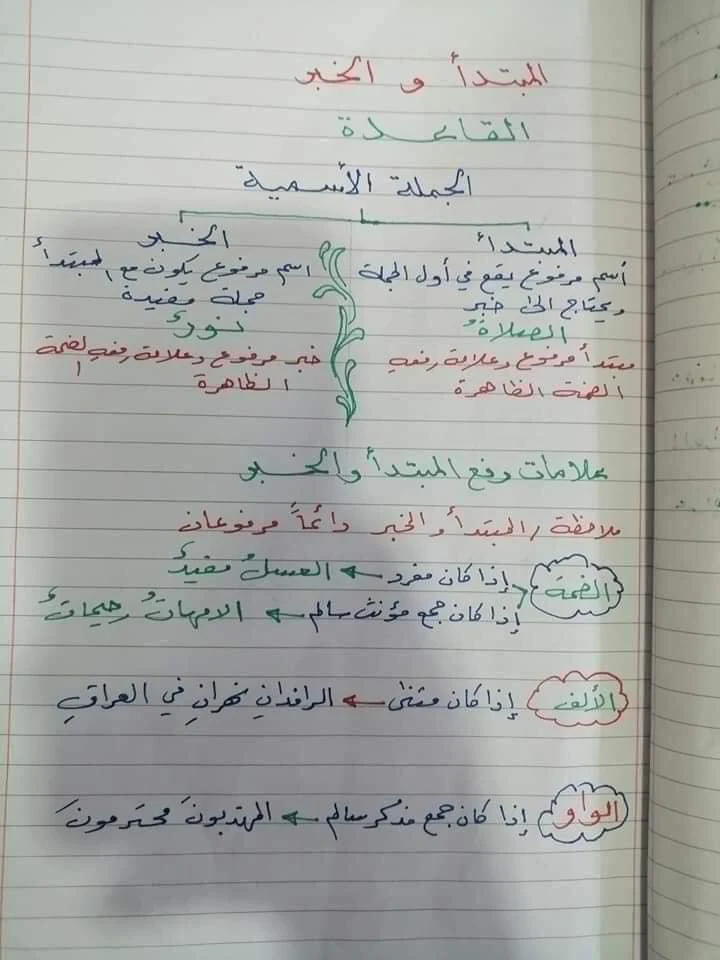 المبتدأ و الخبر
القاعدة
الجملة الأسمية
المبتدأ
أسم مرفوع يقع في أول الجملة
ويحتاج الى خبر
الصلاةُ
مبتدأ مرفوع وعلامة رفعه
الضمة الظاهرة
الخبر
اسم مرفوع يكون مع المبتدأ
جملة مفيدة
نورٌ
خبر مرفوع وعلامة رفعه الضمة
الظاهرة
علامات رفع المبتدأ والخبر
ملاحظة / المبتدأ والخبر دائماً مرفوعان
الضمة
إذا كان مفرد ← العسلُ مفيدٌ
إذا كان جمع مؤنث سالم ← الامهاتُ رحيماتٌ
الألف إذا كان مثنى ← الرافدانِ نهرانِ في العراقِ
الواو إذا كان جمع مذكر سالم ← المهذبونَ محترمونَ